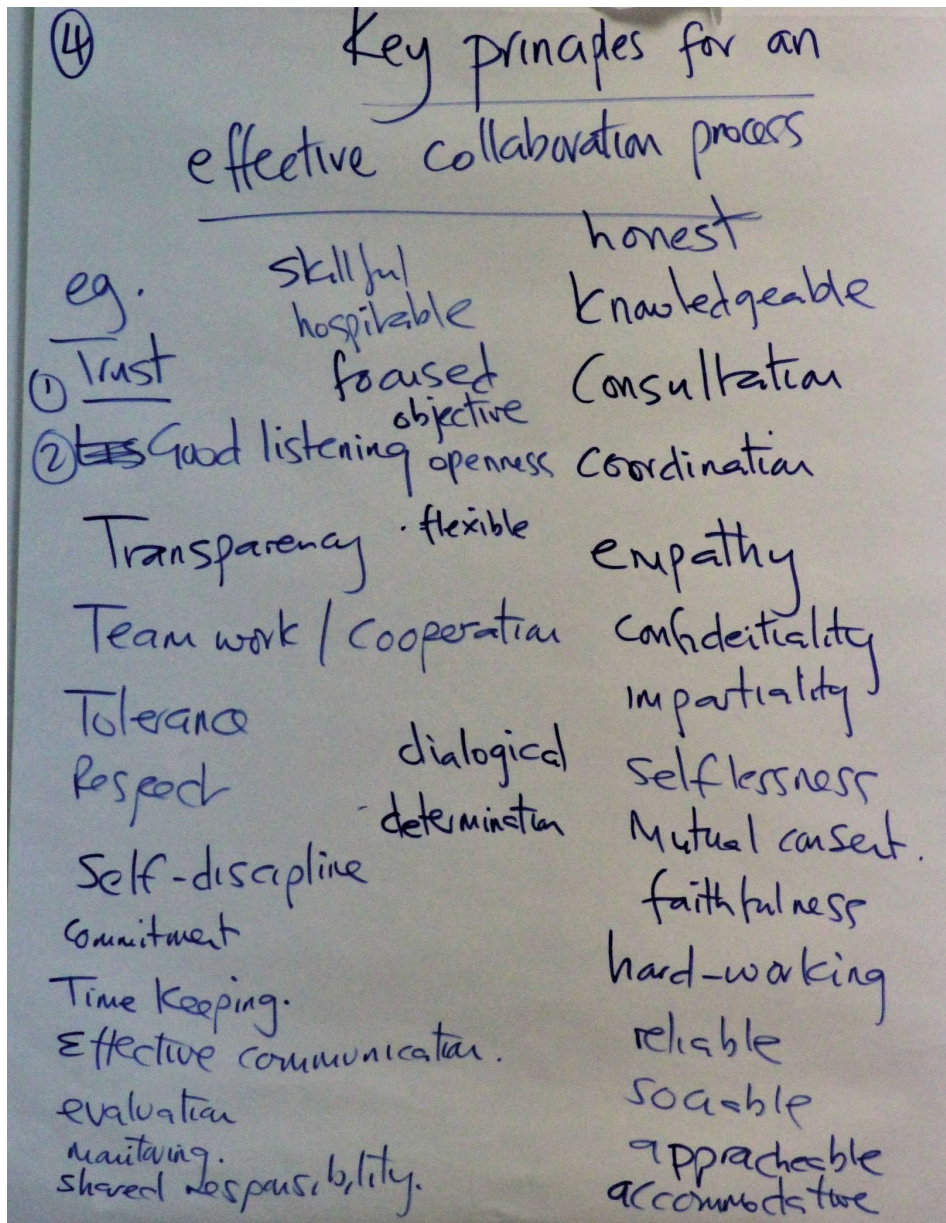 ④
Key principles for an
effective collaboration process
eg.
① Trust
② Good listening
Transparency
Team work / Cooperation
Tolerance
Respect
Self-discipline
Commitment
Time Keeping.
Effective communication.
evaluation
monitoring.
shared responsibility.
skillful
hospitable
focused
objective
openness
· flexible
dialogical
- determination
honest
Knowledgeable
Consultation
Coordination
empathy
Confideitiality
impartiality
Selflessness
Mutual consent.
faithfulness
hard-working
reliable
sociable
appracheable
accommodative